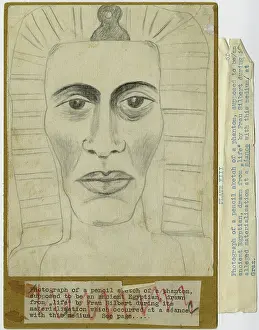 Photograph of a pencil sketch of a phantom,
supposed to be an ancient Egyptian, drawn
from „life" by Frau Hilbert during its
materialisation which occurred at a séance
with this medium. See page....
PLATE
Photograph of a pencil sketch of a phantom, supposed to be an
ancient Egyptian, drawn from „life" by Frau Hilbert during
alleged materialisation at a séance with this medium, at
Graz.